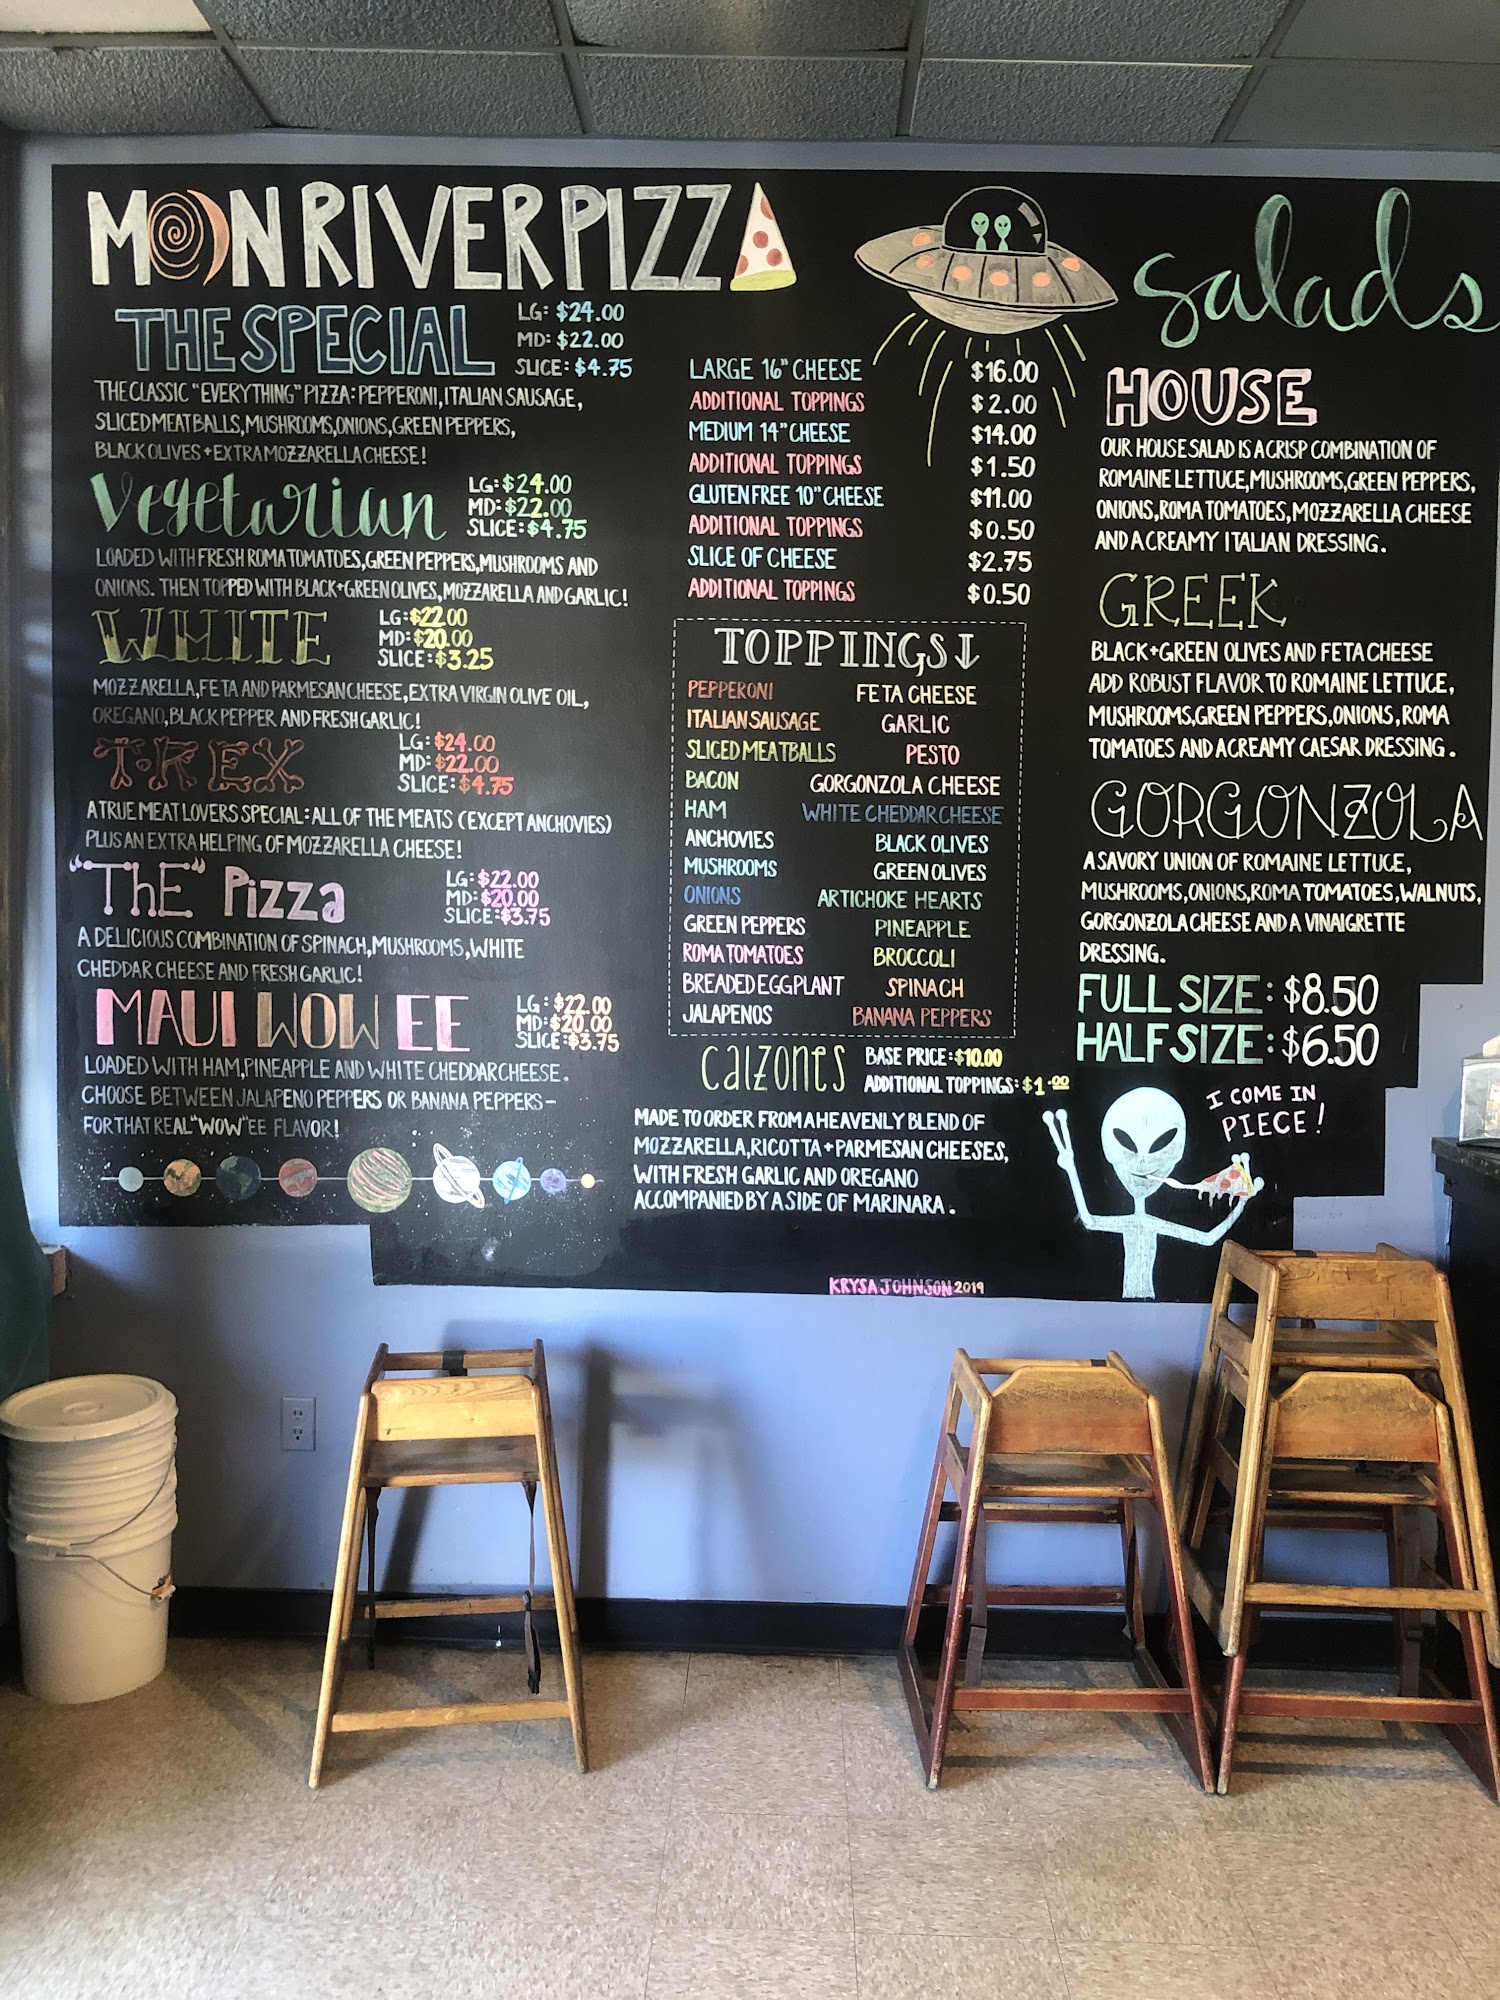 MOON RIVER PIZZA
THE SPECIAL
LG: $24.00
MD: $22.00
SLICE: $4.75
THE CLASSIC "EVERYTHING" PIZZA: PEPPERONI, ITALIAN SAUSAGE,
SLICED MEATBALLS, MUSHROOMS, ONIONS, GREEN PEPPERS,
BLACK OLIVES + EXTRA MOZZARELLA CHEESE!
Vegetarian
LG: $24.00
MD: $22.00
SLICE: $4.75
LOADED WITH FRESH ROMA TOMATOES, GREEN PEPPERS, MUSHROOMS AND
ONIONS. THEN TOPPED WITH BLACK+GREEN OLIVES, MOZZARELLA AND GARLIC!
WHITE
LG: $22.00
MD: $20.00
SLICE: $3.25
MOZZARELLA, FETA AND PARMESAN CHEESE, EXTRA VIRGIN OLIVE OIL,
OREGANO, BLACK PEPPER AND FRESH GARLIC!
T-REX
LG: $24.00
MD: $22.00
SLICE: $4.75
A TRUE MEAT LOVERS SPECIAL: ALL OF THE MEATS (EXCEPT ANCHOVIES)
PLUS AN EXTRA HELPING OF MOZZARELLA CHEESE!
"ThE" Pizza
LG: $22.00
MD: $20.00
SLICE: $3.75
A DELICIOUS COMBINATION OF SPINACH, MUSHROOMS, WHITE
CHEDDAR CHEESE AND FRESH GARLIC!
MAUI WOW EE
LG: $22.00
MD: $20.00
SLICE: $3.75
LOADED WITH HAM, PINEAPPLE AND WHITE CHEDDAR CHEESE.
CHOOSE BETWEEN JALAPENO PEPPERS OR BANANA PEPPERS-
FOR THAT REAL "WOW"EE FLAVOR!
LARGE 16" CHEESE $16.00
ADDITIONAL TOPPINGS $2.00
MEDIUM 14" CHEESE $14.00
ADDITIONAL TOPPINGS $1.50
GLUTEN FREE 10" CHEESE $11.00
ADDITIONAL TOPPINGS $0.50
SLICE OF CHEESE $2.75
ADDITIONAL TOPPINGS $0.50
TOPPINGS↓
PEPPERONI FETA CHEESE
ITALIAN SAUSAGE GARLIC
SLICED MEATBALLS PESTO
BACON GORGONZOLA CHEESE
HAM WHITE CHEDDAR CHEESE
ANCHOVIES BLACK OLIVES
MUSHROOMS GREEN OLIVES
ONIONS ARTICHOKE HEARTS
GREEN PEPPERS PINEAPPLE
ROMA TOMATOES BROCCOLI
BREADED EGGPLANT SPINACH
JALAPENOS BANANA PEPPERS
calzones
BASE PRICE: $10.00
ADDITIONAL TOPPINGS: $1.00
MADE TO ORDER FROM A HEAVENLY BLEND OF
MOZZARELLA, RICOTTA + PARMESAN CHEESES,
WITH FRESH GARLIC AND OREGANO
ACCOMPANIED BY A SIDE OF MARINARA.
KRYSA JOHNSON 2019
salads
HOUSE
OUR HOUSE SALAD IS A CRISP COMBINATION OF
ROMAINE LETTUCE, MUSHROOMS, GREEN PEPPERS,
ONIONS, ROMA TOMATOES, MOZZARELLA CHEESE
AND A CREAMY ITALIAN DRESSING.
GREEK
BLACK+GREEN OLIVES AND FETA CHEESE
ADD ROBUST FLAVOR TO ROMAINE LETTUCE,
MUSHROOMS, GREEN PEPPERS, ONIONS, ROMA
TOMATOES AND A CREAMY CAESAR DRESSING.
GORGONZOLA
A SAVORY UNION OF ROMAINE LETTUCE,
MUSHROOMS, ONIONS, ROMA TOMATOES, WALNUTS,
GORGONZOLA CHEESE AND A VINAIGRETTE
DRESSING.
FULL SIZE: $8.50
HALF SIZE: $6.50
I COME IN
PIECE!